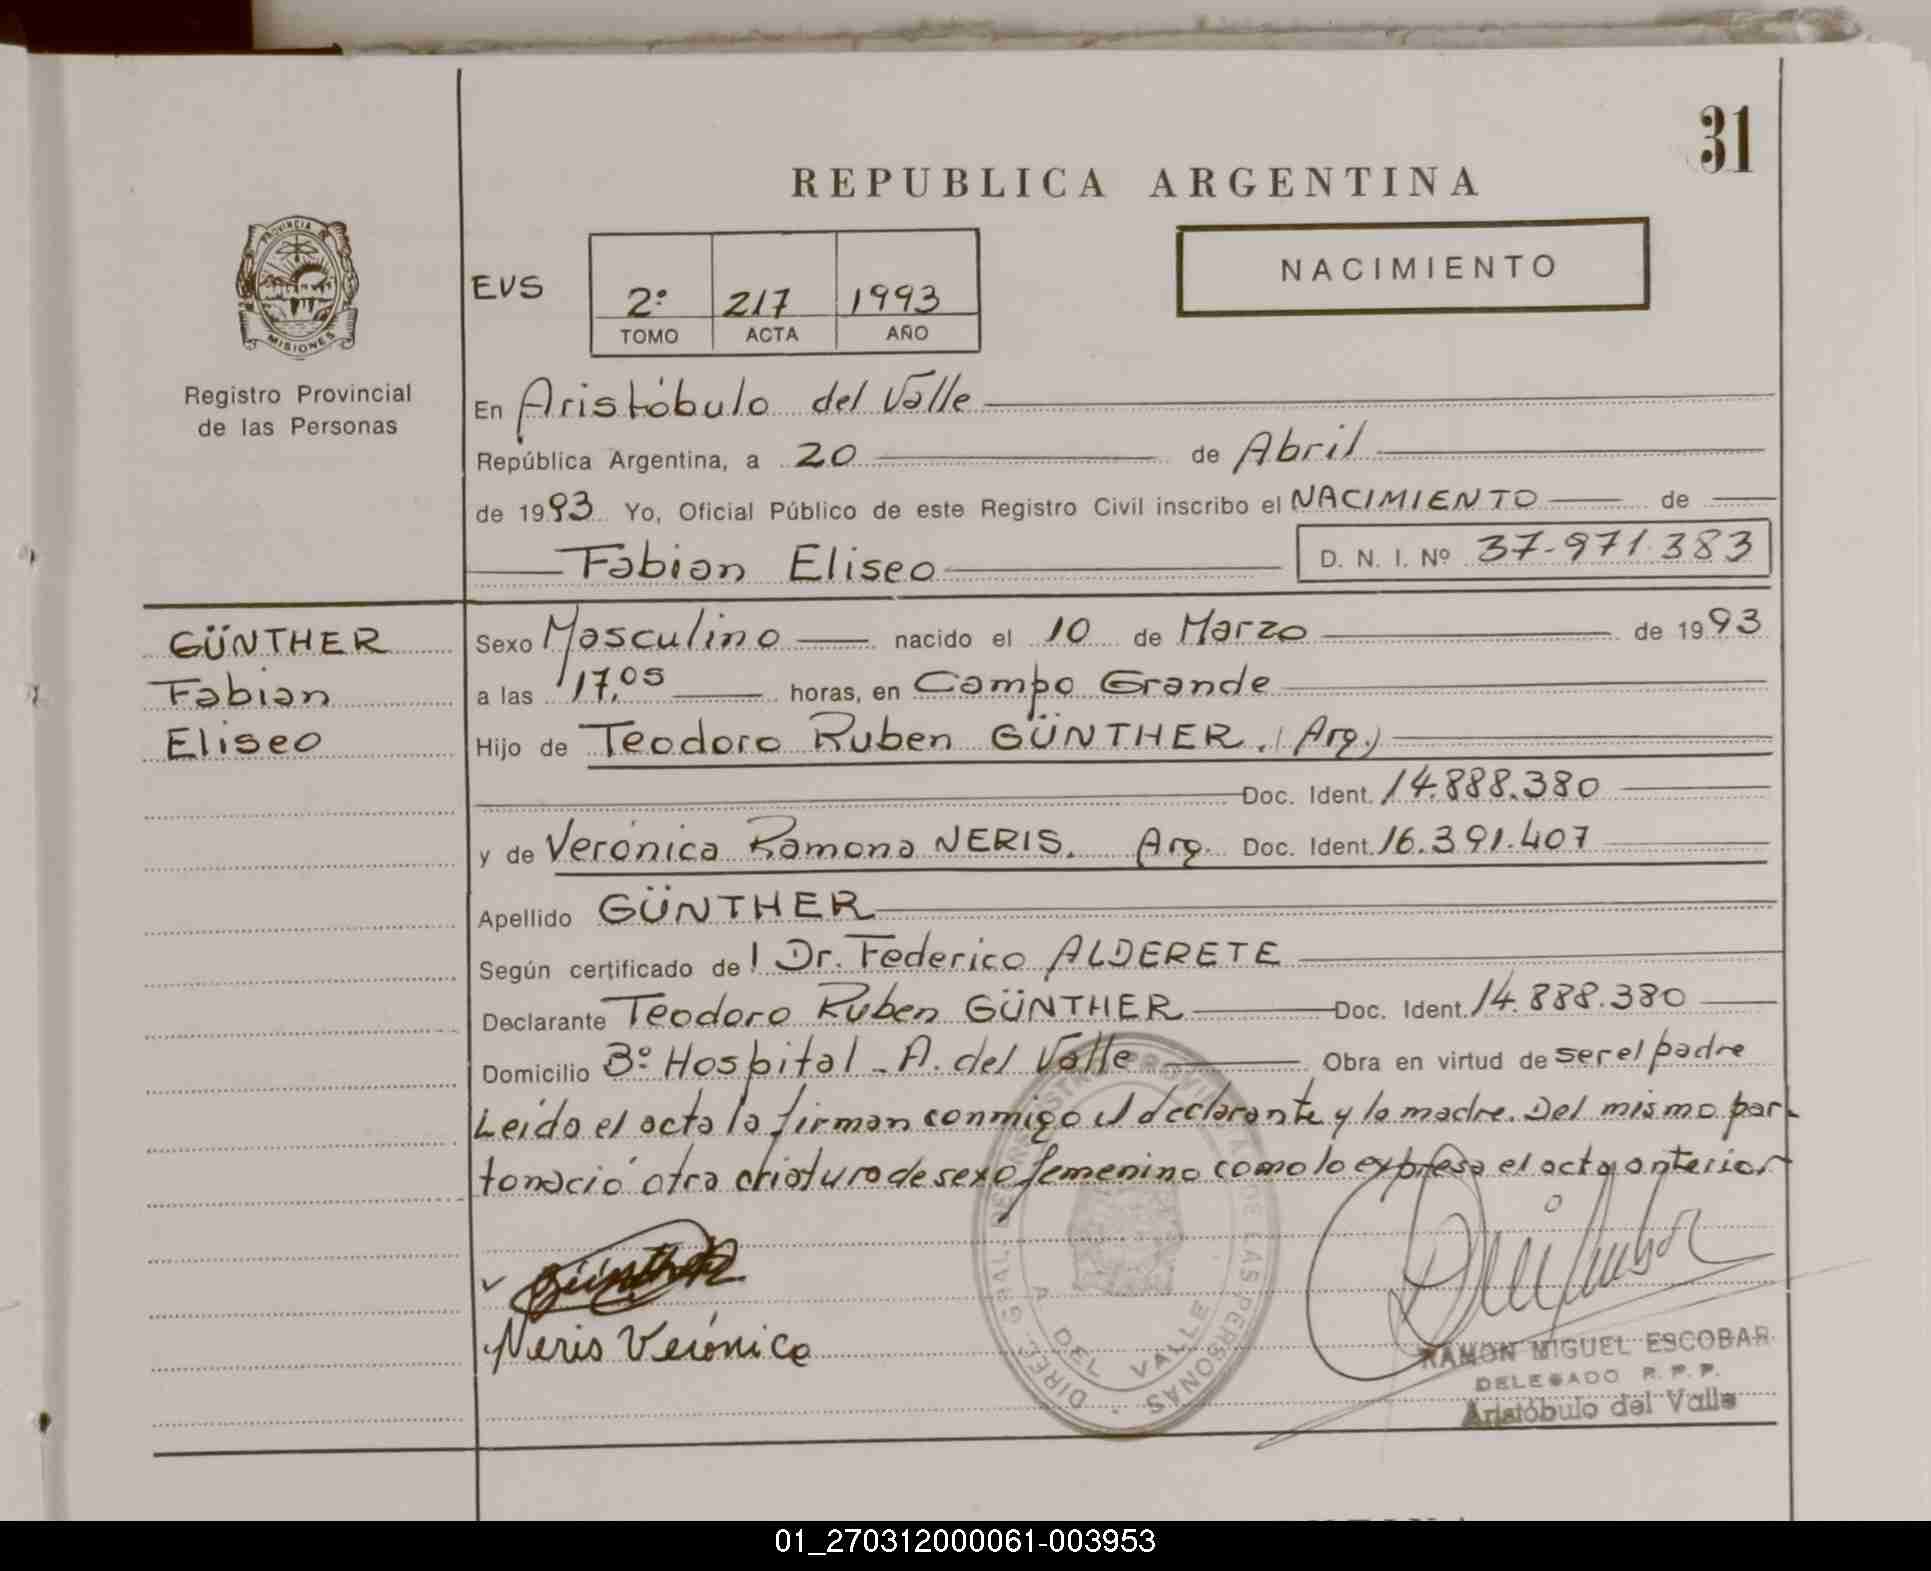 31
REPUBLICA ARGENTINA
PROVINCIA DE
MISIONES
Registro Provincial
de las Personas
EVS
2º 217 1993
TOMO ACTA AÑO
NACIMIENTO
En Aristóbulo del Valle
República Argentina, a 20 de Abril
de 1993 Yo, Oficial Público de este Registro Civil inscribo el NACIMIENTO de
Fabian Eliseo D. N. I. Nº 37-971.383
GÜNTHER
Fabian
Eliseo
Sexo Masculino nacido el 10 de Marzo de 1993
a las 17,05 horas, en Campo Grande
Hijo de Teodoro Ruben GÜNTHER. (Arg.)
Doc. Ident. 14.888.380
y de Verónica Ramona NERIS. Arg. Doc. Ident. 16.391.407
Apellido GÜNTHER
Según certificado del Dr. Federico ALDERETE
Declarante Teodoro Ruben GÜNTHER Doc. Ident. 14.888.380
Domicilio Bº Hospital - A. del Valle Obra en virtud de ser el padre
Leída el acta la firman conmigo el declarante y la madre. Del mismo par-
to nació otra criatura de sexo femenino como lo expresa el acta anterior
Günther
Neris Verónica
DIREC. GRAL. DEL REGISTRO PROVINCIAL DE LAS PERSONAS
A. DEL VALLE
RAMON MIGUEL ESCOBAR
DELEGADO R. P. P.
Aristóbulo del Valle
01_270312000061-003953